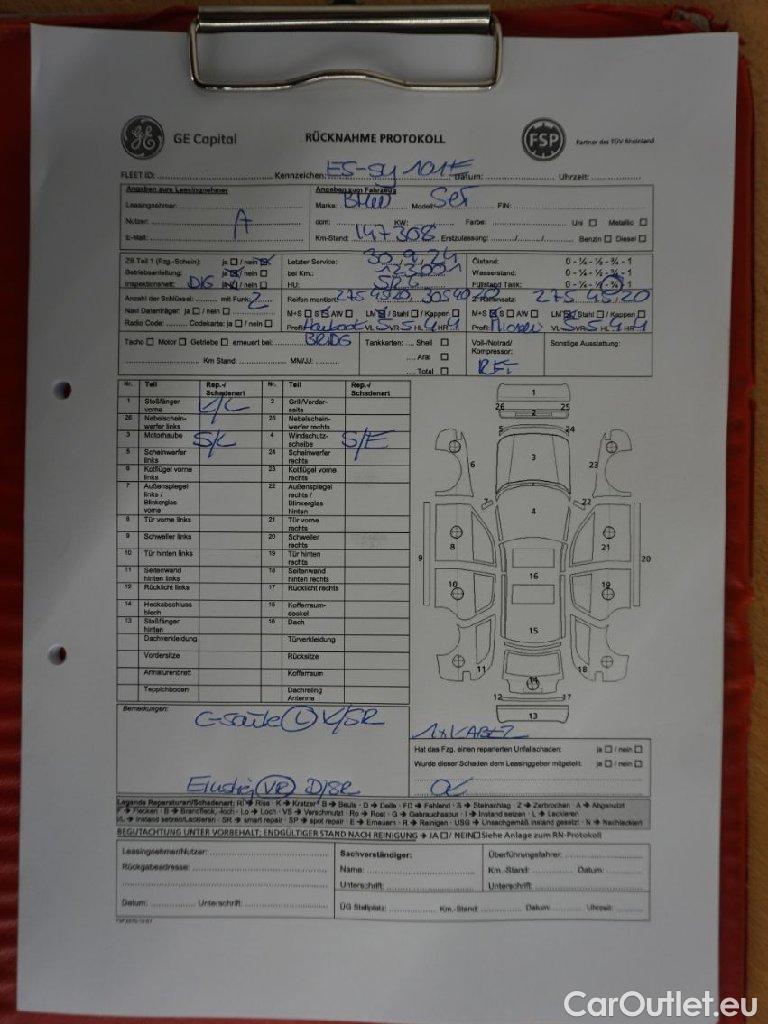 GE Capital RÜCKNAHME PROTOKOLL FSP Partner des TÜV Rheinland
FLEET ID: Kennzeichen: ES-SY 101E Datum: Uhrzeit:
Angaben zum Leasingnehmer Angaben zum Fahrzeug
Leasingnehmer: Marke: BMW Modell: 5er FIN:
Nutzer: A ccm: KW: Farbe: Uni ☐ Metallic ☐
E-Mail: Km-Stand: 147308 Erstzulassung: Benzin ☐ Diesel ☐
ZB Teil 1 (Fzg.-Schein): ja ☐ / nein ☒ Letzter Service: 30.9.24 Ölstand: 0 - ¼ - ½ - ¾ - 1
Betriebsanleitung: ja ☒ / nein ☐ bei Km.: Wasserstand: 0 - ¼ - ½ - ¾ - 1
Inspektionsheft: DIG nein ☐ HU: Füllstand Tank: 0 - ¼ - ½ - ¾ - 1
Anzahl der Schlüssel: mit Funk: 2 Reifen montiert: 2. Reifensatz:
Navi Datenträger: ja ☐ / nein ☐ N+S S A/W LN / Stahl / Kappen N+S S A/W LN / Stahl / Kappen
Radio Code: Codekarte: ja ☐ / nein ☐ Profil: Hankook VL 5 VR 5 HL 4 HR 4 Profil: VL 5 VR 5 HL 4 HR 4
Tacho ☐ Motor ☐ Getriebe ☐ erneuert bei: BRIDG Tankkarten: Shell ☐ Voll-/Notrad/ Sonstige Ausstattung:
Kompressor:
Aral ☐
Km Stand: MM/JJ: Total ☐
Nr. Teil Rep.-/ Schadenart Nr. Teil Rep.-/ Schadenart
1 Stoßfänger vorne K/L 2 Grill/Vorderseite
26 Nebelscheinwerfer links 25 Nebelscheinwerfer rechts
3 Motorhaube S/L 4 Windschutzscheibe S/E
5 Scheinwerfer links 24 Scheinwerfer rechts
6 Kotflügel vorne links 23 Kotflügel vorne rechts
7 Außenspiegel links / Blinkerglas vorne 22 Außenspiegel rechts / Blinkerglas hinten
8 Tür vorne links 21 Tür vorne rechts
9 Schweller links 20 Schweller rechts
10 Tür hinten links 19 Tür hinten rechts
11 Seitenwand hinten links 18 Seitenwand hinten rechts
12 Rücklicht links 17 Rücklicht rechts
14 Heckabschlussblech 15 Kofferraumdeckel
13 Stoßfänger hinten 16 Dach
Dachverkleidung Türverkleidung
Vordersitze Rücksitze
Armaturenbrett Kofferraum
Teppichboden Dachreling Antenne
1
26 25
2
5 24
6 3 23
7 22
4
8 21
9 20
10 16 19
15
11 14 18
12 17
13
Bemerkungen:
C-Säule (L) K/SR
1xKABEL
Hat das Fzg. einen reparierten Unfallschaden: ja ☐ / nein ☐
Wurde dieser Schaden dem Leasinggeber mitgeteilt: ja ☐ / nein ☐
Einstieg (VR) D/SR
Legende Reparaturen/Schadenart: RI → Riss · K → Kratzer · B → Beule · D → Delle · FE → Fehlend · S → Steinschlag · Z → Zerbrochen · A → Abgenutzt
F → Flecken · B → Brandfleck, -loch · Lo → Loch · VS → Verschmutzt · Ro → Rost · G → Gebrauchsspur · I → Instand setzen · L → Lackieren
I/L → Instand setzen/Lackieren · SR → smart repair · SP → spot repair · E → Erneuern · R → Reinigen · USG → Unsachgemäß instand gesetzt · N → Nachlackiert
BEGUTACHTUNG UNTER VORBEHALT: ENDGÜLTIGER STAND NACH REINIGUNG → JA ☐ / NEIN ☐ Siehe Anlage zum RN-Protokoll
Leasingnehmer/Nutzer: Sachverständiger: Überführungsfahrer:
Rückgabeadresse: Name: Km.-Stand: Datum:
Unterschrift: Unterschrift:
Datum: Unterschrift: ÜG Stellplatz: Km.-Stand: Datum: Uhrzeit:
CarOutlet.eu